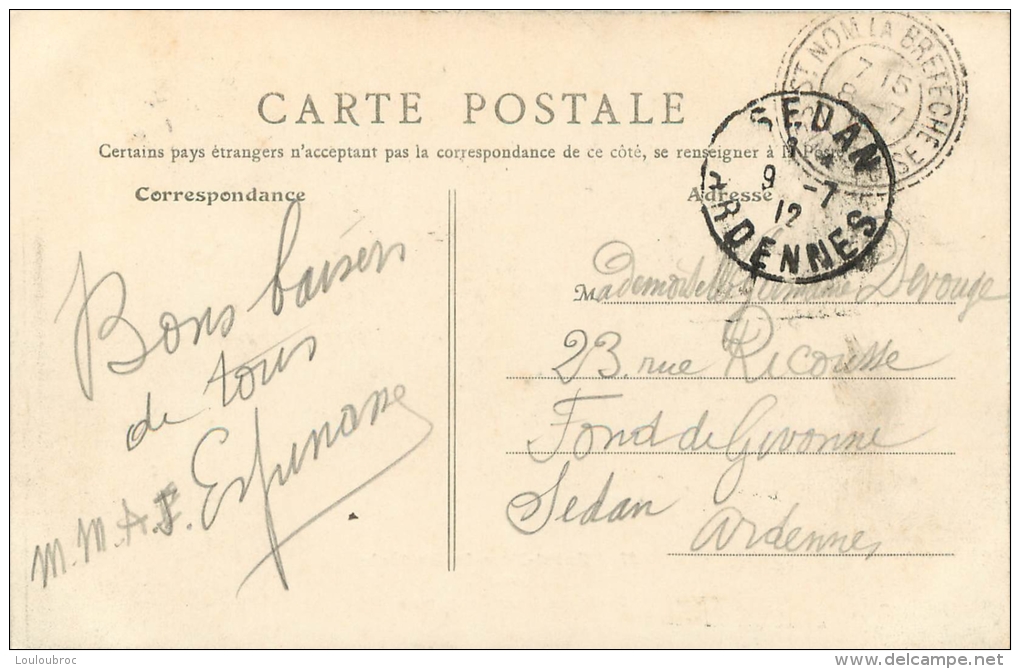 ST NOM LA BRETECHE
7 15
SEDAN
9 -7
12
ARDENNES
CARTE POSTALE
Certains pays étrangers n'acceptent pas la correspondance de ce côté, se renseigner à
Correspondance
Adresse
Bons baisers
de tous
M. M. A. F.
Mademoiselle Germaine Devouge
23. rue Ricousse
Fond de Givonne
Sedan
Ardennes
Louloubroc
delcampe.net